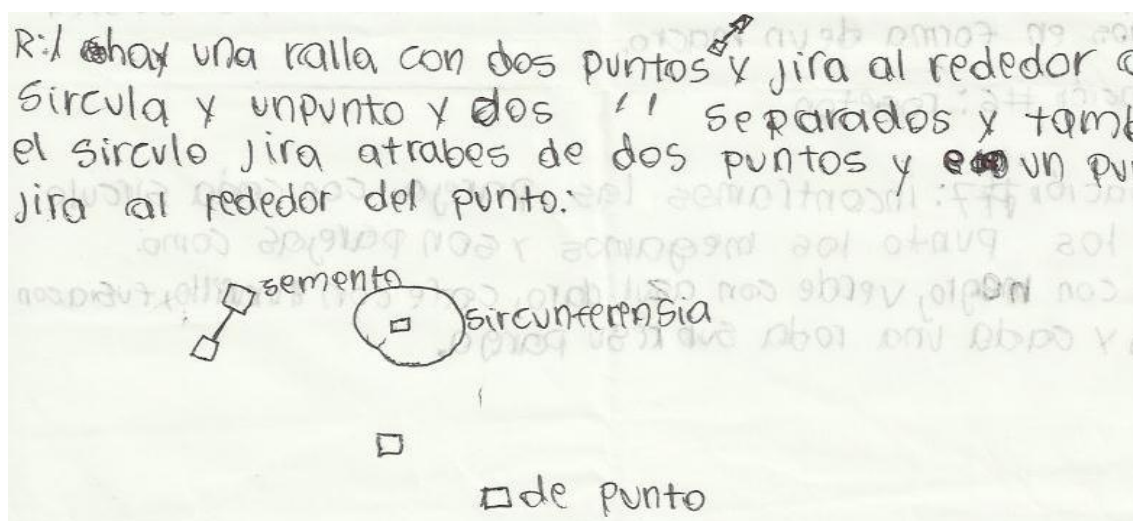 R:/ hay una ralla con dos puntos y jira al rededor
Sircula y unpunto y dos '' separados y tamb
el sirculo jira atrabes de dos puntos y un pu
jira al rededor del punto.
semento
sircunferensia
de punto